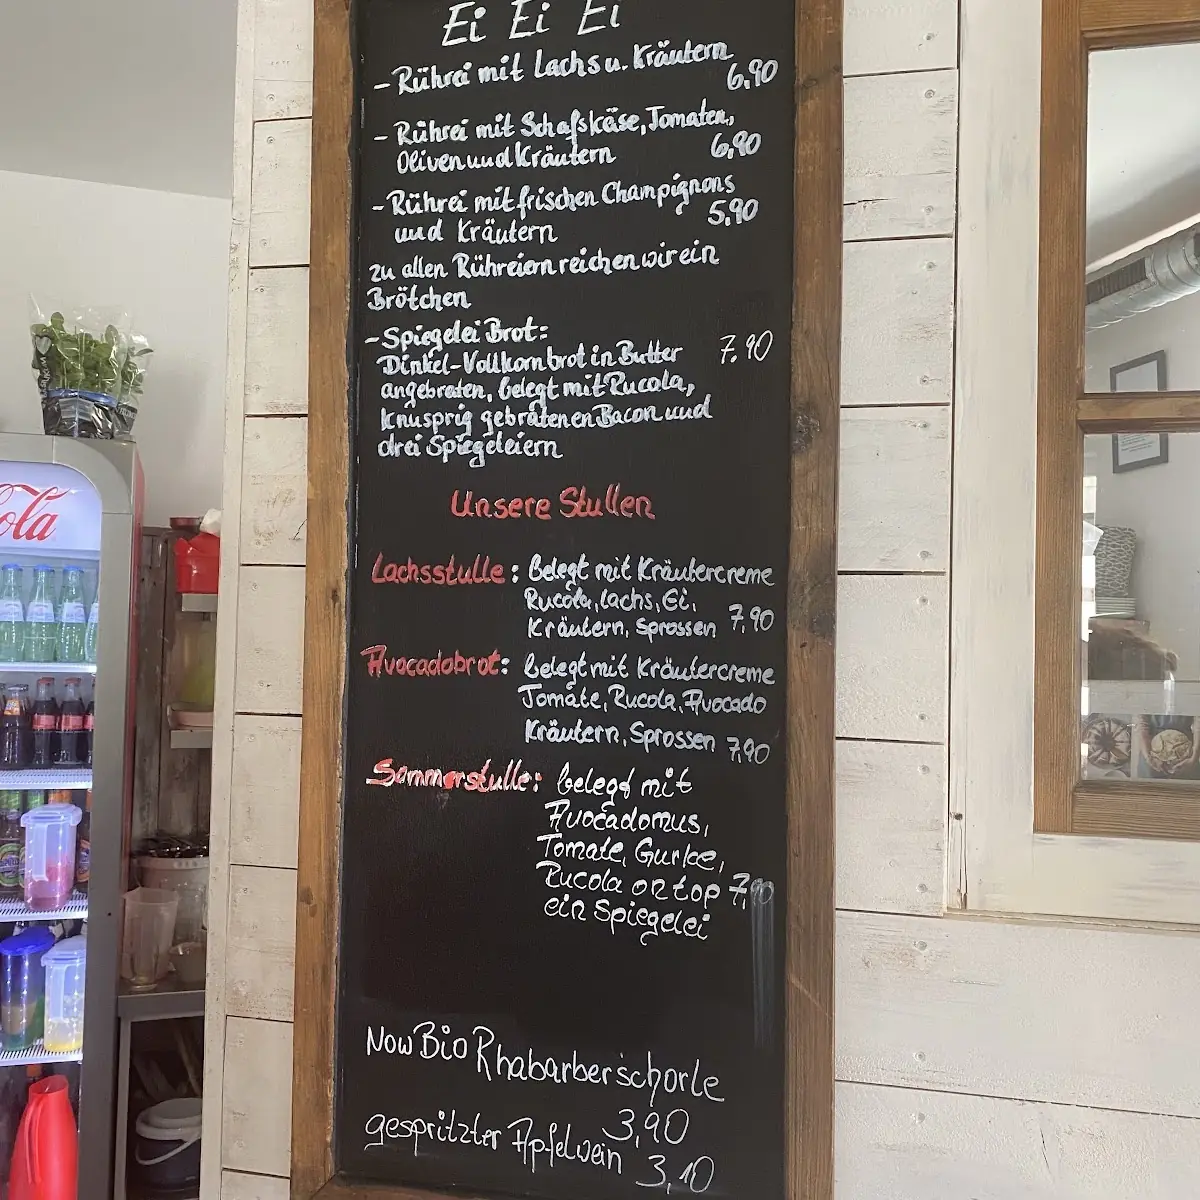 Ei Ei Ei
- Rührei mit Lachs u. Kräutern
6,90
- Rührei mit Schafskäse, Tomaten,
Oliven und Kräutern 6,90
- Rührei mit frischen Champignons
und Kräutern 5,90
zu allen Rühreiern reichen wir ein
Brötchen
- Spiegelei Brot:
Dinkel-Vollkornbrot in Butter 7,90
angebraten, belegt mit Rucola,
knusprig gebratenen Bacon und
drei Spiegeleiern
Unsere Stullen
Lachsstulle: Belegt mit Kräutercreme
Rucola, Lachs, Ei,
Kräutern, Sprossen 7,90
Avocadobrot: belegt mit Kräutercreme
Tomate, Rucola, Avocado
Kräutern, Sprossen 7,90
Sommerstulle: belegt mit
Avocadomus,
Tomate, Gurke,
Rucola on top 7,90
ein Spiegelei
Now Bio Rhabarberschorle
3,90
gespritzter Apfelwein 3,10
ola